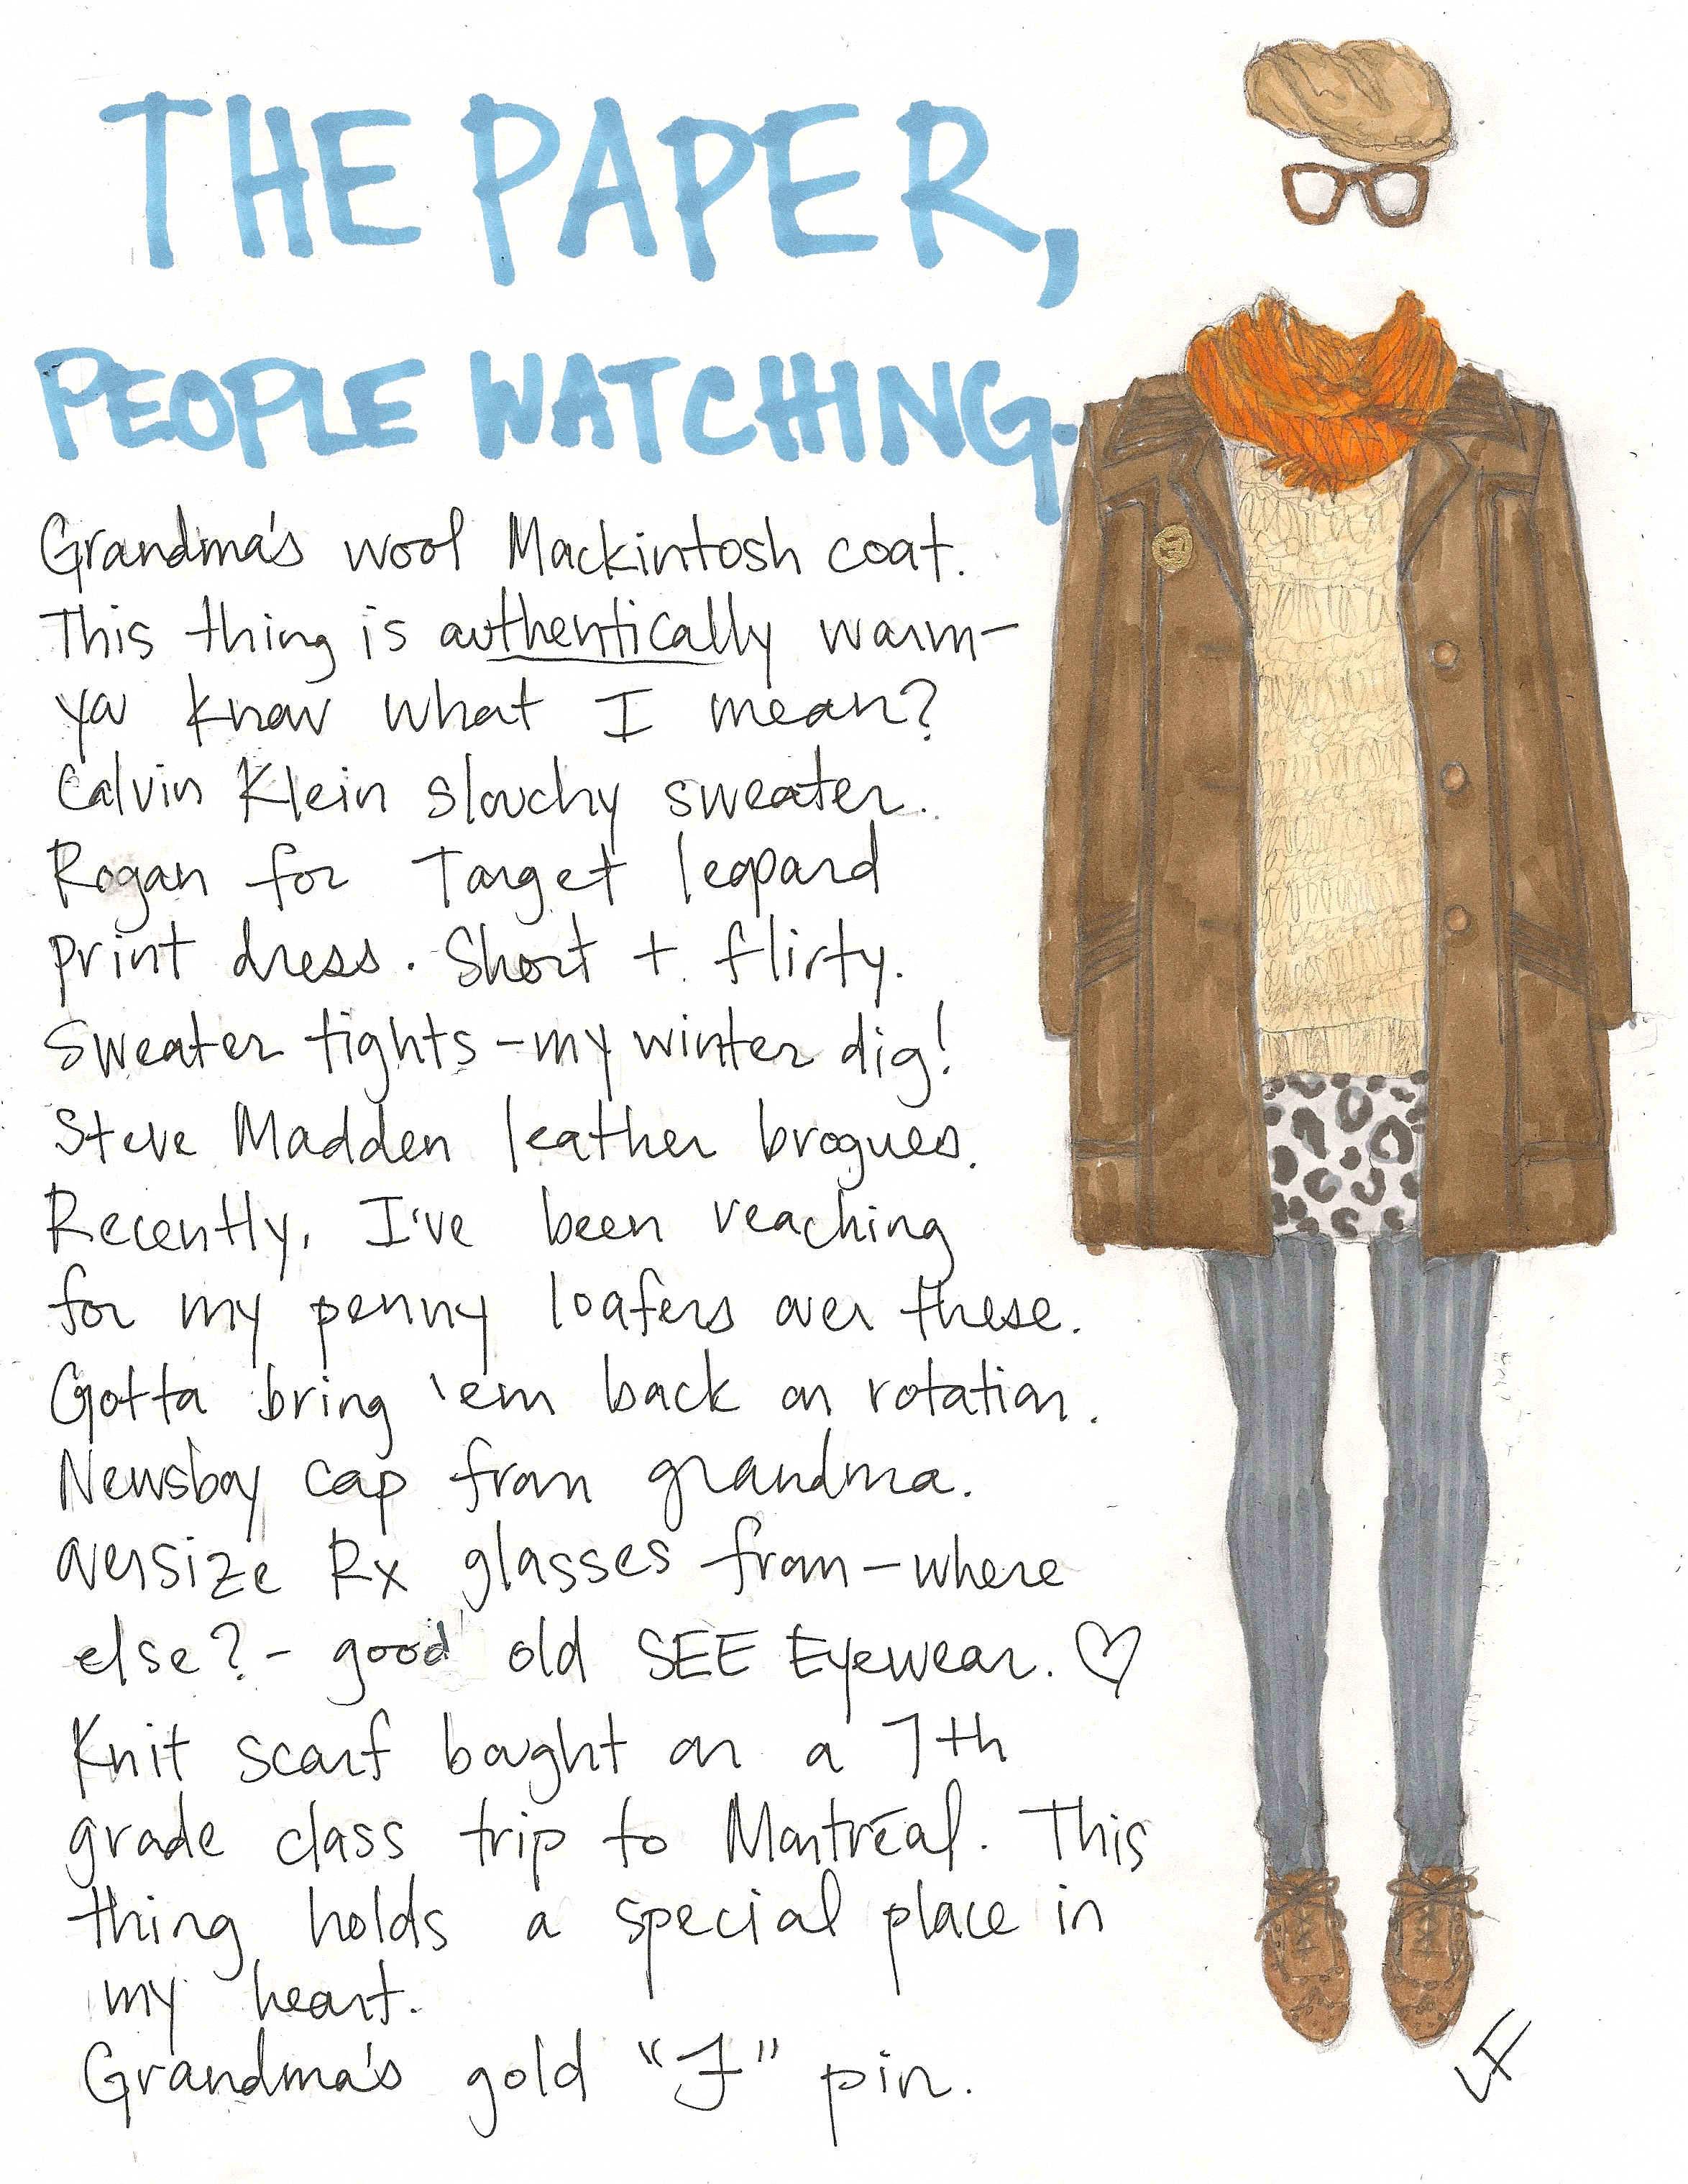 THE PAPER,
PEOPLE WATCHING.
Grandma's wool Mackintosh coat.
This thing is authentically warm-
ya know what I mean?
Calvin Klein slouchy sweater.
Rogan for Target leopard
print dress. Short + flirty.
Sweater tights - my winter dig!
Steve Madden leather brogues.
Recently, I've been reaching
for my penny loafers over these.
Gotta bring 'em back on rotation.
Newsboy cap from grandma.
oversize Rx glasses from - where
else? - good old SEE Eyewear. ♡
Knit scarf bought on a 7th
grade class trip to Montréal. This
thing holds a special place in
my heart.
Grandma's gold "F" pin.
LF